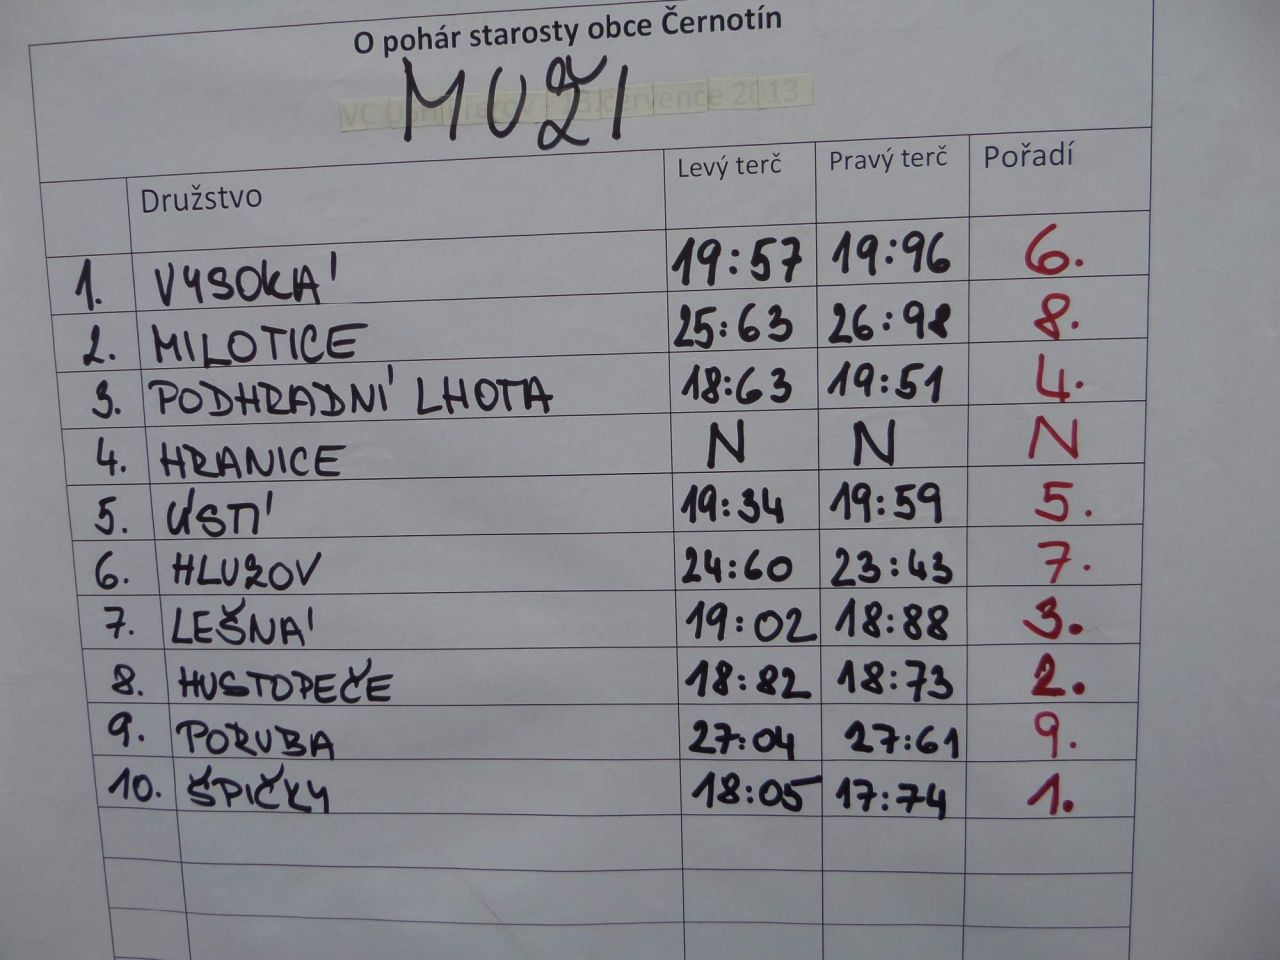 O pohár starosty obce Černotín
MUŽI
Družstvo Levý terč Pravý terč Pořadí
1. VYSOKÁ 19:57 19:96 6.
2. MILOTICE 25:63 26:98 8.
3. PODHRADNÍ LHOTA 18:63 19:51 4.
4. HRANICE N N N
5. ÚSTÍ 19:34 19:59 5.
6. HLUZOV 24:60 23:43 7.
7. LEŠNÁ 19:02 18:88 3.
8. HUSTOPEČE 18:82 18:73 2.
9. PORUBA 27:04 27:61 9.
10. ŠPIČKY 18:05 17:74 1.